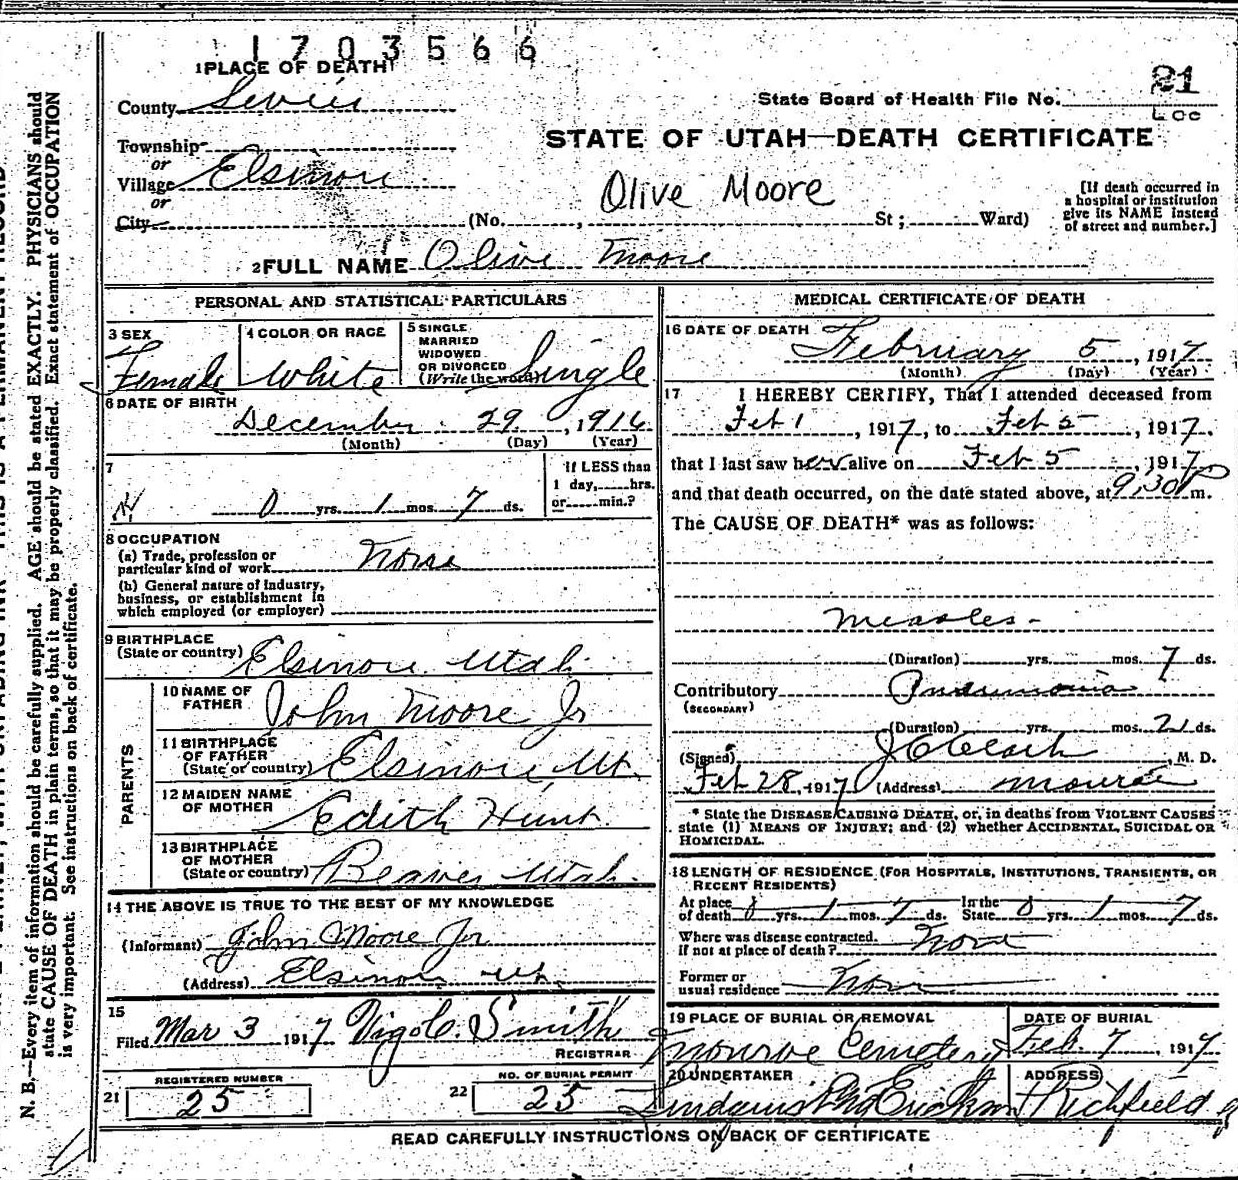 1703566
1 PLACE OF DEATH
County Sevier
State Board of Health File No. 21
Loc
Township
or
Village Elsinore
or
City
STATE OF UTAH—DEATH CERTIFICATE
Olive Moore
(No. , St; Ward)
[If death occurred in
a hospital or institution
give its NAME instead
of street and number.]
2 FULL NAME Olive Moore
PERSONAL AND STATISTICAL PARTICULARS
3 SEX
Female
4 COLOR OR RACE
White
5 SINGLE
MARRIED
WIDOWED
OR DIVORCED
(Write the word) Single
6 DATE OF BIRTH
December 29, 1916
(Month) (Day) (Year)
7
0 yrs. 1 mos. 7 ds.
If LESS than
1 day, hrs.
or min.?
8 OCCUPATION
(a) Trade, profession or
particular kind of work None
(b) General nature of Industry,
business, or establishment in
which employed (or employer)
9 BIRTHPLACE
(State or country) Elsinore Utah
PARENTS
10 NAME OF
FATHER John Moore Jr
11 BIRTHPLACE
OF FATHER
(State or country) Elsinore Ut.
12 MAIDEN NAME
OF MOTHER Edith Hunt
13 BIRTHPLACE
OF MOTHER
(State or country) Beaver Utah.
14 THE ABOVE IS TRUE TO THE BEST OF MY KNOWLEDGE
(Informant) John Moore Jr
(Address) Elsinore Ut.
15
Filed Mar 3 1917 Vigo C. Smith
REGISTRAR
REGISTERED NUMBER
21 25
NO. OF BURIAL PERMIT
22 25
MEDICAL CERTIFICATE OF DEATH
16 DATE OF DEATH
February 5, 1917
(Month) (Day) (Year)
17 I HEREBY CERTIFY, That I attended deceased from
Feb 1, 1917, to Feb 5, 1917,
that I last saw her alive on Feb 5 1917
and that death occurred, on the date stated above, at 9:30 P m.
The CAUSE OF DEATH* was as follows:
Measles-
(Duration) yrs. mos. 7 ds.
Contributory Pneumonia
(SECONDARY)
(Duration) yrs. mos. 2 ds.
(Signed) , M. D.
Feb 28, 1917 (Address) Monroe
* State the DISEASE CAUSING DEATH, or, in deaths from VIOLENT CAUSES
state (1) MEANS OF INJURY; and (2) whether ACCIDENTAL, SUICIDAL OR
HOMICIDAL.
18 LENGTH OF RESIDENCE (FOR HOSPITALS, INSTITUTIONS, TRANSIENTS, OR
RECENT RESIDENTS)
At place
of death 0 yrs. 1 mos. 7 ds. In the
State 0 yrs. 1 mos. 7 ds.
Where was disease contracted.
if not at place of death?
Former or
usual residence
19 PLACE OF BURIAL OR REMOVAL
Monroe Cemetery
DATE OF BURIAL
Feb. 7, 1917
20 UNDERTAKER
ADDRESS
Richfield
READ CAREFULLY INSTRUCTIONS ON BACK OF CERTIFICATE
N. B.—Every item of information should be carefully supplied. AGE should be stated EXACTLY. PHYSICIANS should
state CAUSE OF DEATH in plain terms, so that it may be properly classified. Exact statement of OCCUPATION
is very important. See instructions on back of certificate.